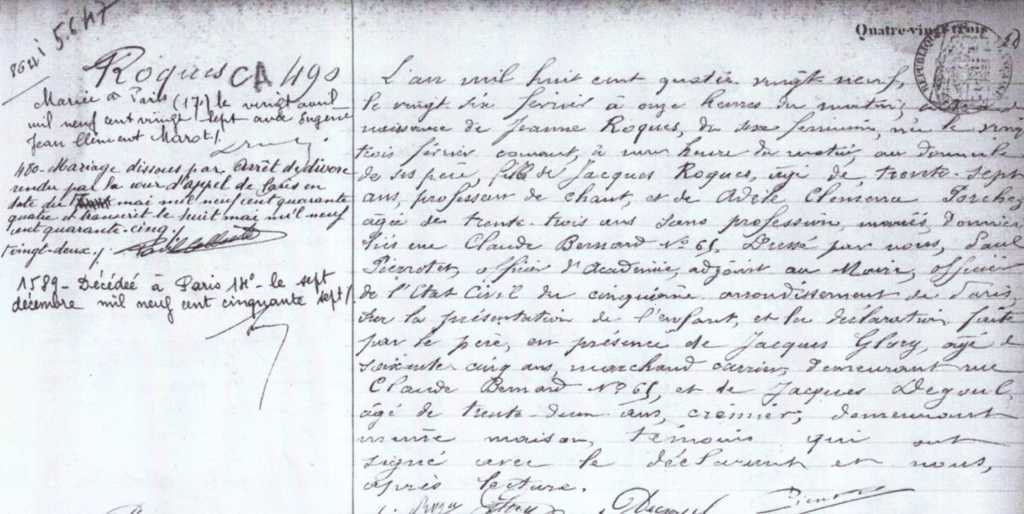 5647
Quatre-vingt-trois
Roques
490
Mariée à Paris (17e) le vingt avril
mil neuf cent vingt-sept avec Eugène
Jean Clément Marot /.
480 - Mariage dissous par arrêt de divorce
rendu par la cour d'appel de Paris en
date du mai mil neuf cent quarante
quatre et transcrit le huit mai mil neuf
cent quarante-cinq /.
vingt-deux /.
1589 - Décédée à Paris 14e - le sept
décembre mil neuf cent cinquante sept /
L'an mil huit cent quatre vingt neuf,
le vingt six février à onze heures du matin,
naissance de Jeanne Roques, du sexe féminin, née le vingt
trois février courant, à une heure du matin, au domicile
de ses père, fille de Jacques Roques, âgé de trente-sept
ans, professeur de chant, et de Adèle Clémence Porche,
âgée de trente-trois ans sans profession, mariés, domiciliés
rue Claude Bernard No 65, Dressé par nous, Paul
Pierrotet, officier d'Académie, adjoint au Maire, officier
de l'Etat Civil du cinquième arrondissement de Paris,
sur la présentation de l'enfant, et la déclaration faite
par le père, en présence de Jacques Glory, âgé de
soixante cinq ans, marchand carrier, demeurant rue
Claude Bernard No 65, et de Jacques Degoul,
âgé de trente-deux ans, crémier, demeurant
même maison, témoins qui ont
signé avec le déclarant et nous,
après lecture.